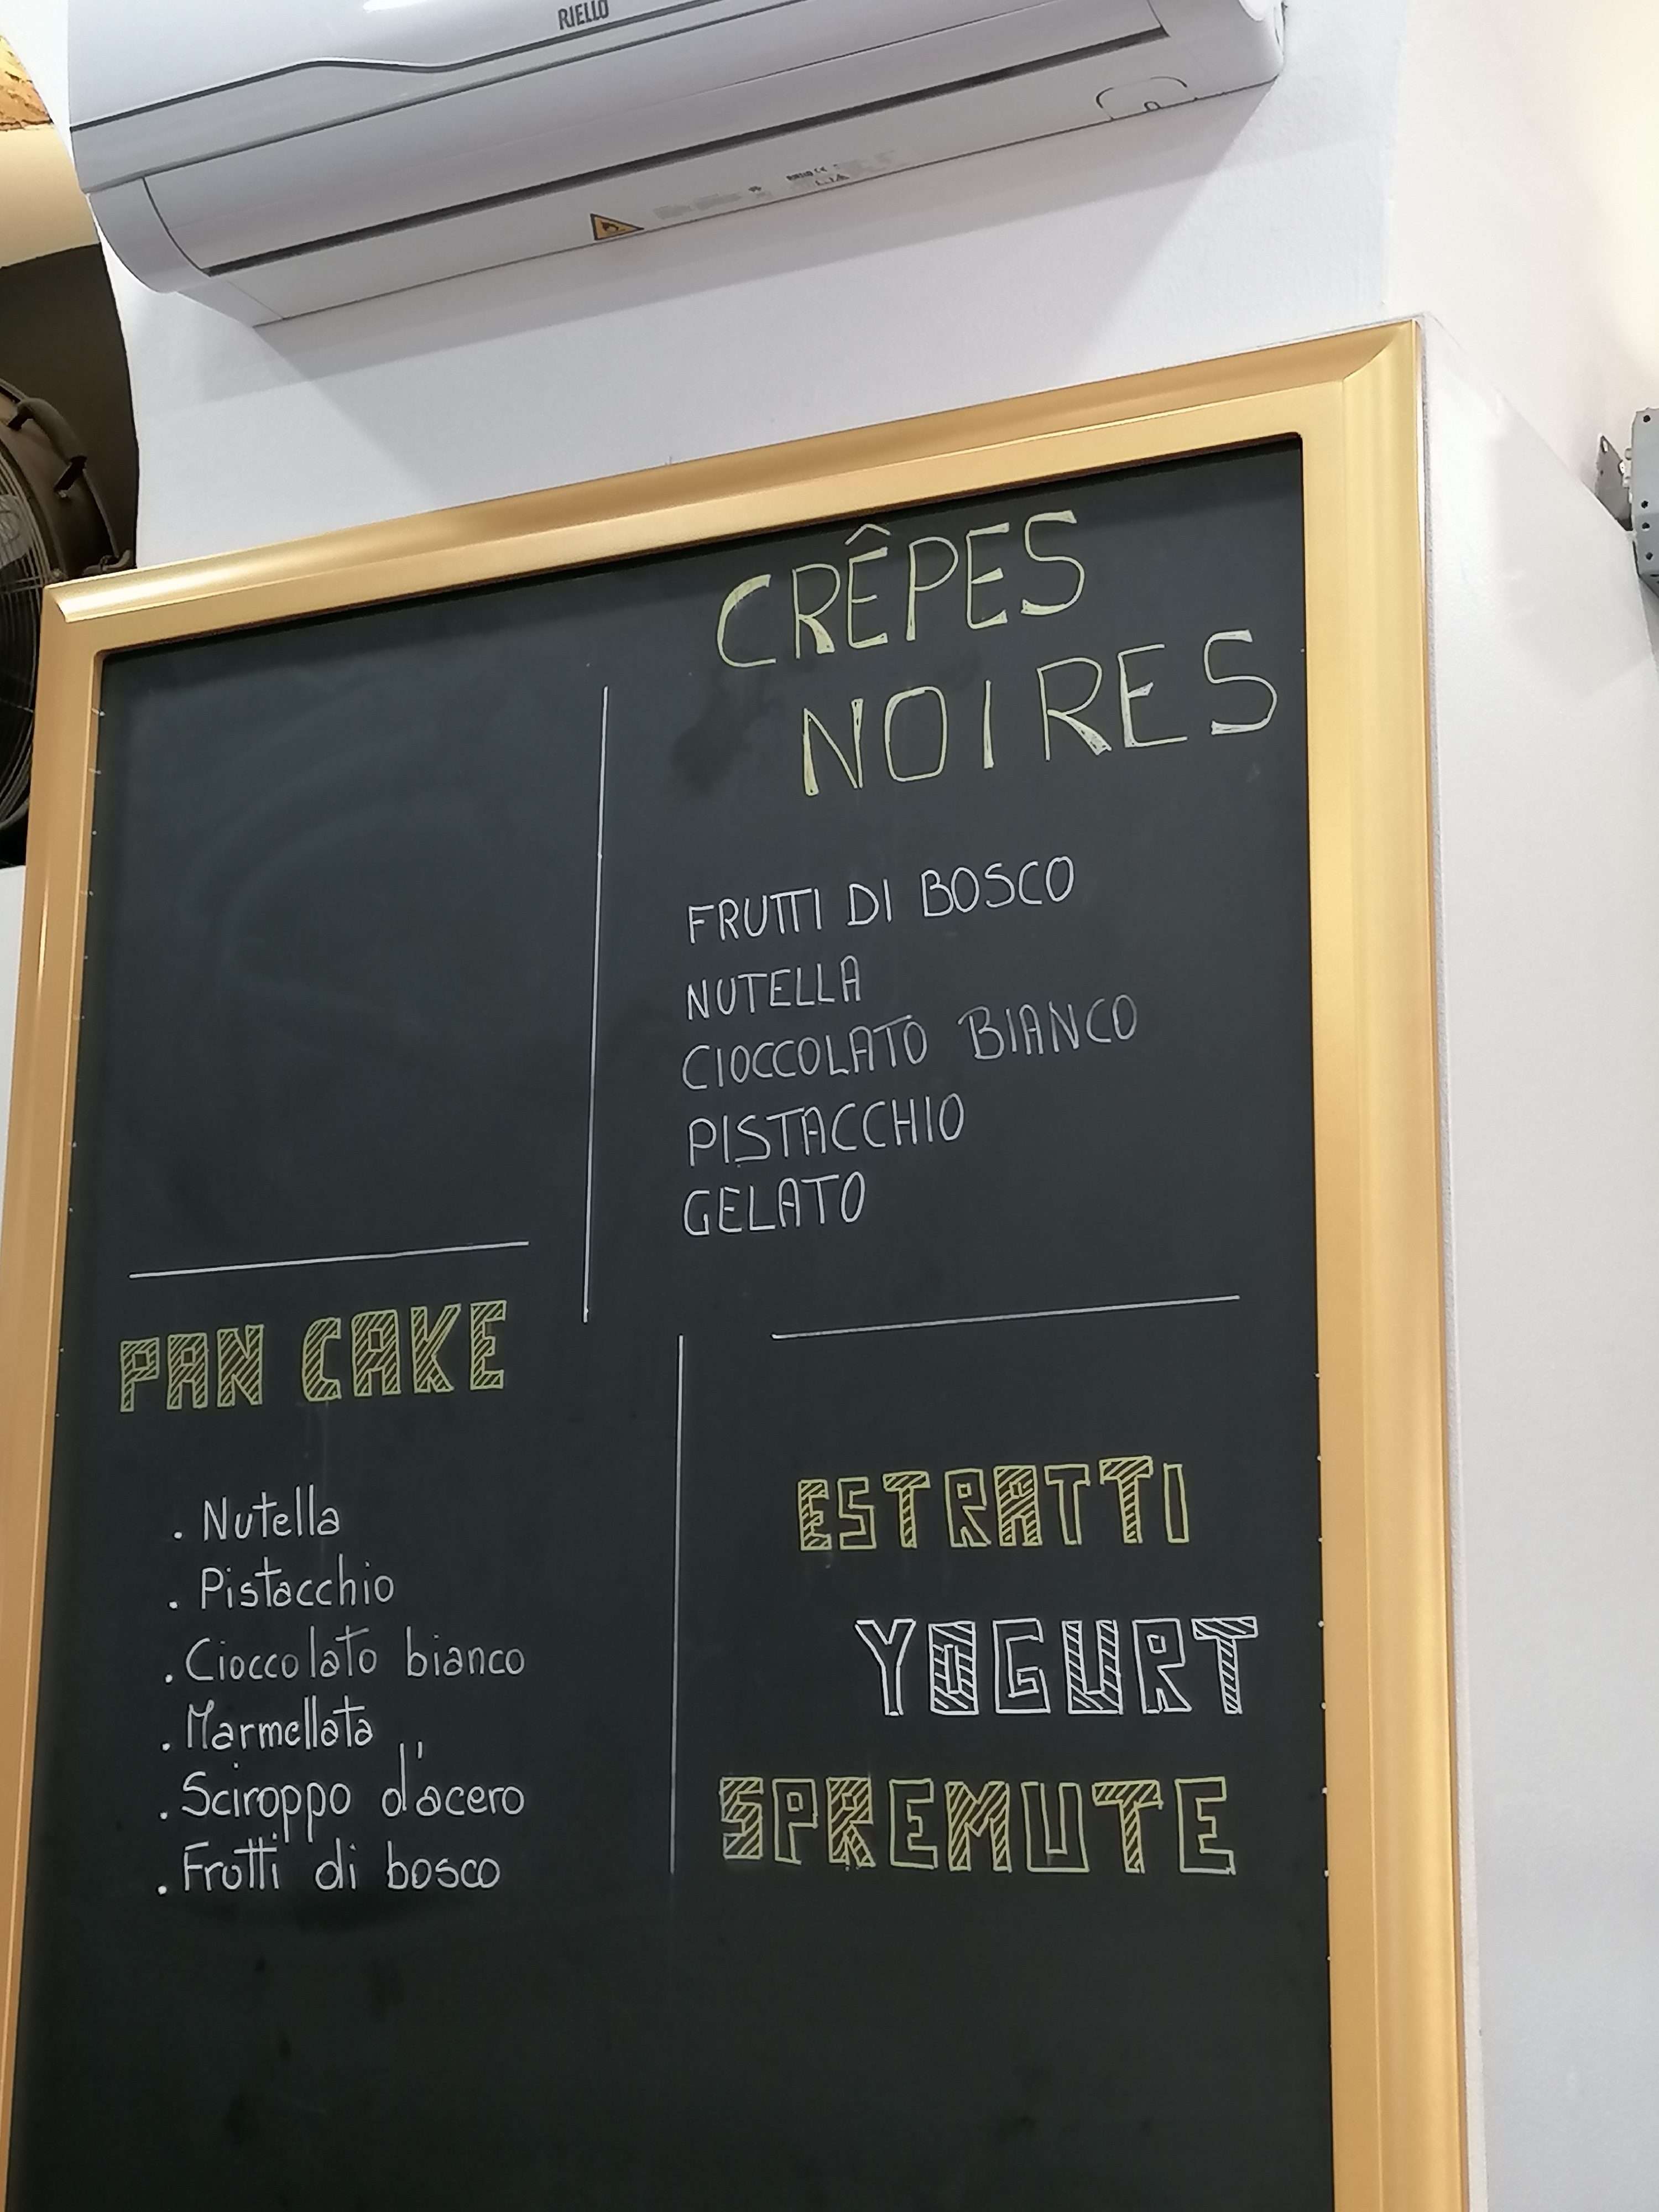 RIELLO
CRÊPES
NOIRES
FRUTTI DI BOSCO
NUTELLA
CIOCCOLATO BIANCO
PISTACCHIO
GELATO
PAN CAKE
. Nutella
. Pistacchio
. Cioccolato bianco
. Marmellata
. Sciroppo d'acero
. Frutti di bosco
ESTRATTI
YOGURT
SPREMUTE